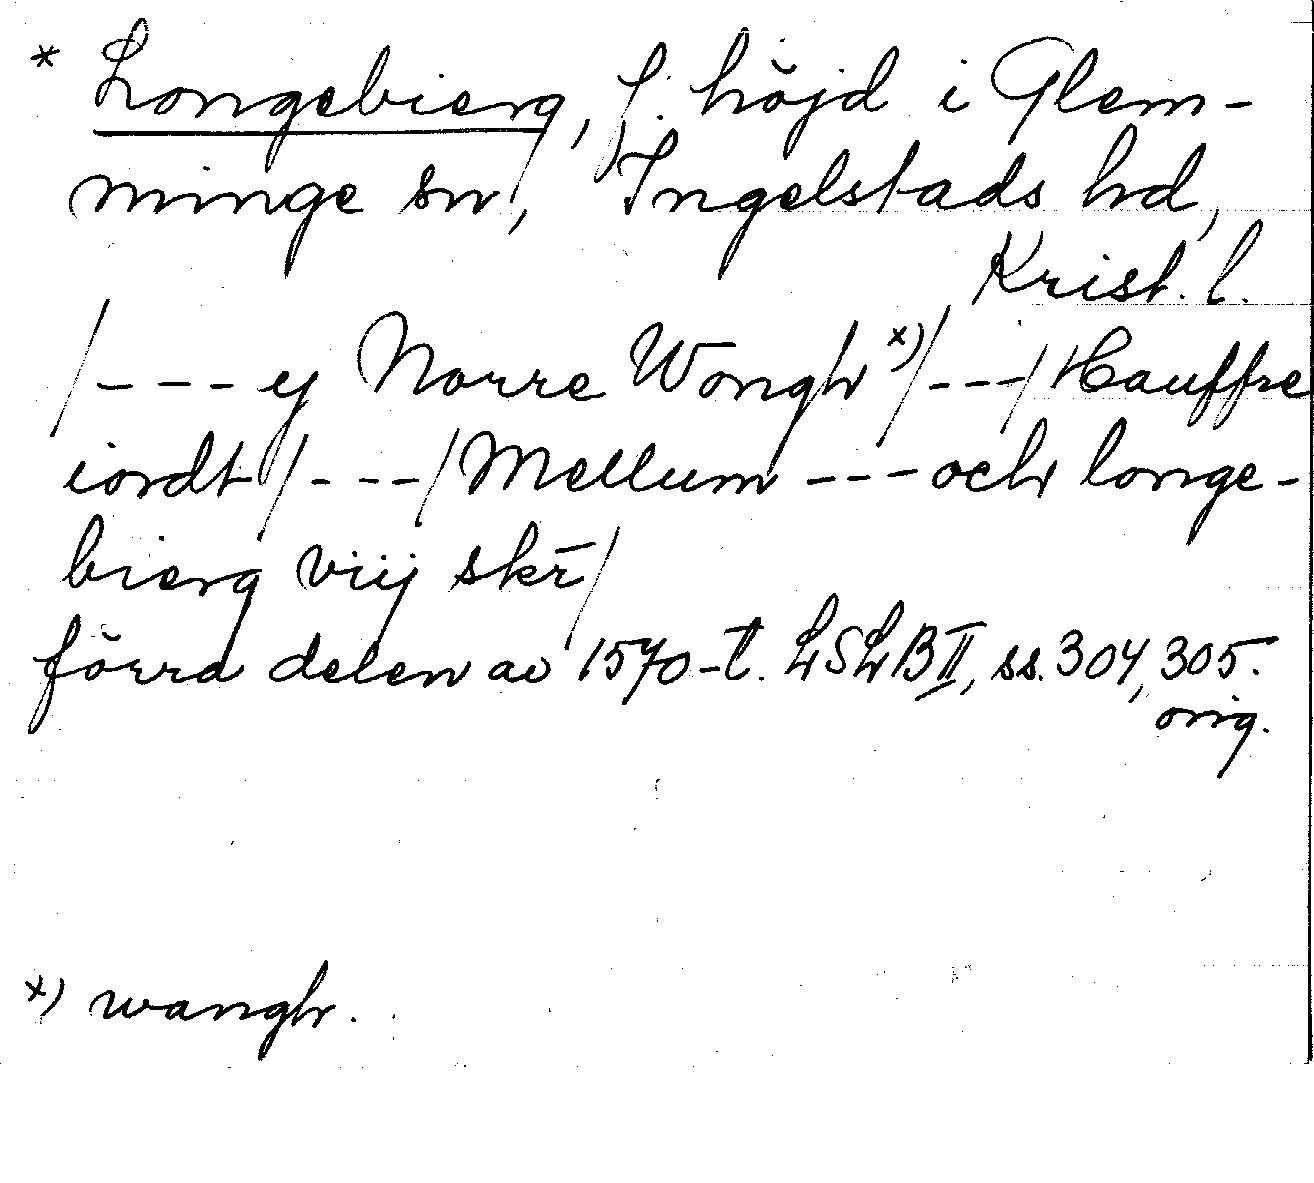 * Longebierg, f. höjd i Glem-
minge sn, Ingelstads hd,
Krist. l.
/---ej Norre Wongh x)/---/Hauffre
iordt/---/Mellum---och longe-
bierg viij skr̄/
förra delen av 1570-t. LSLB II, ss. 304, 305.
orig.
x) wangh.